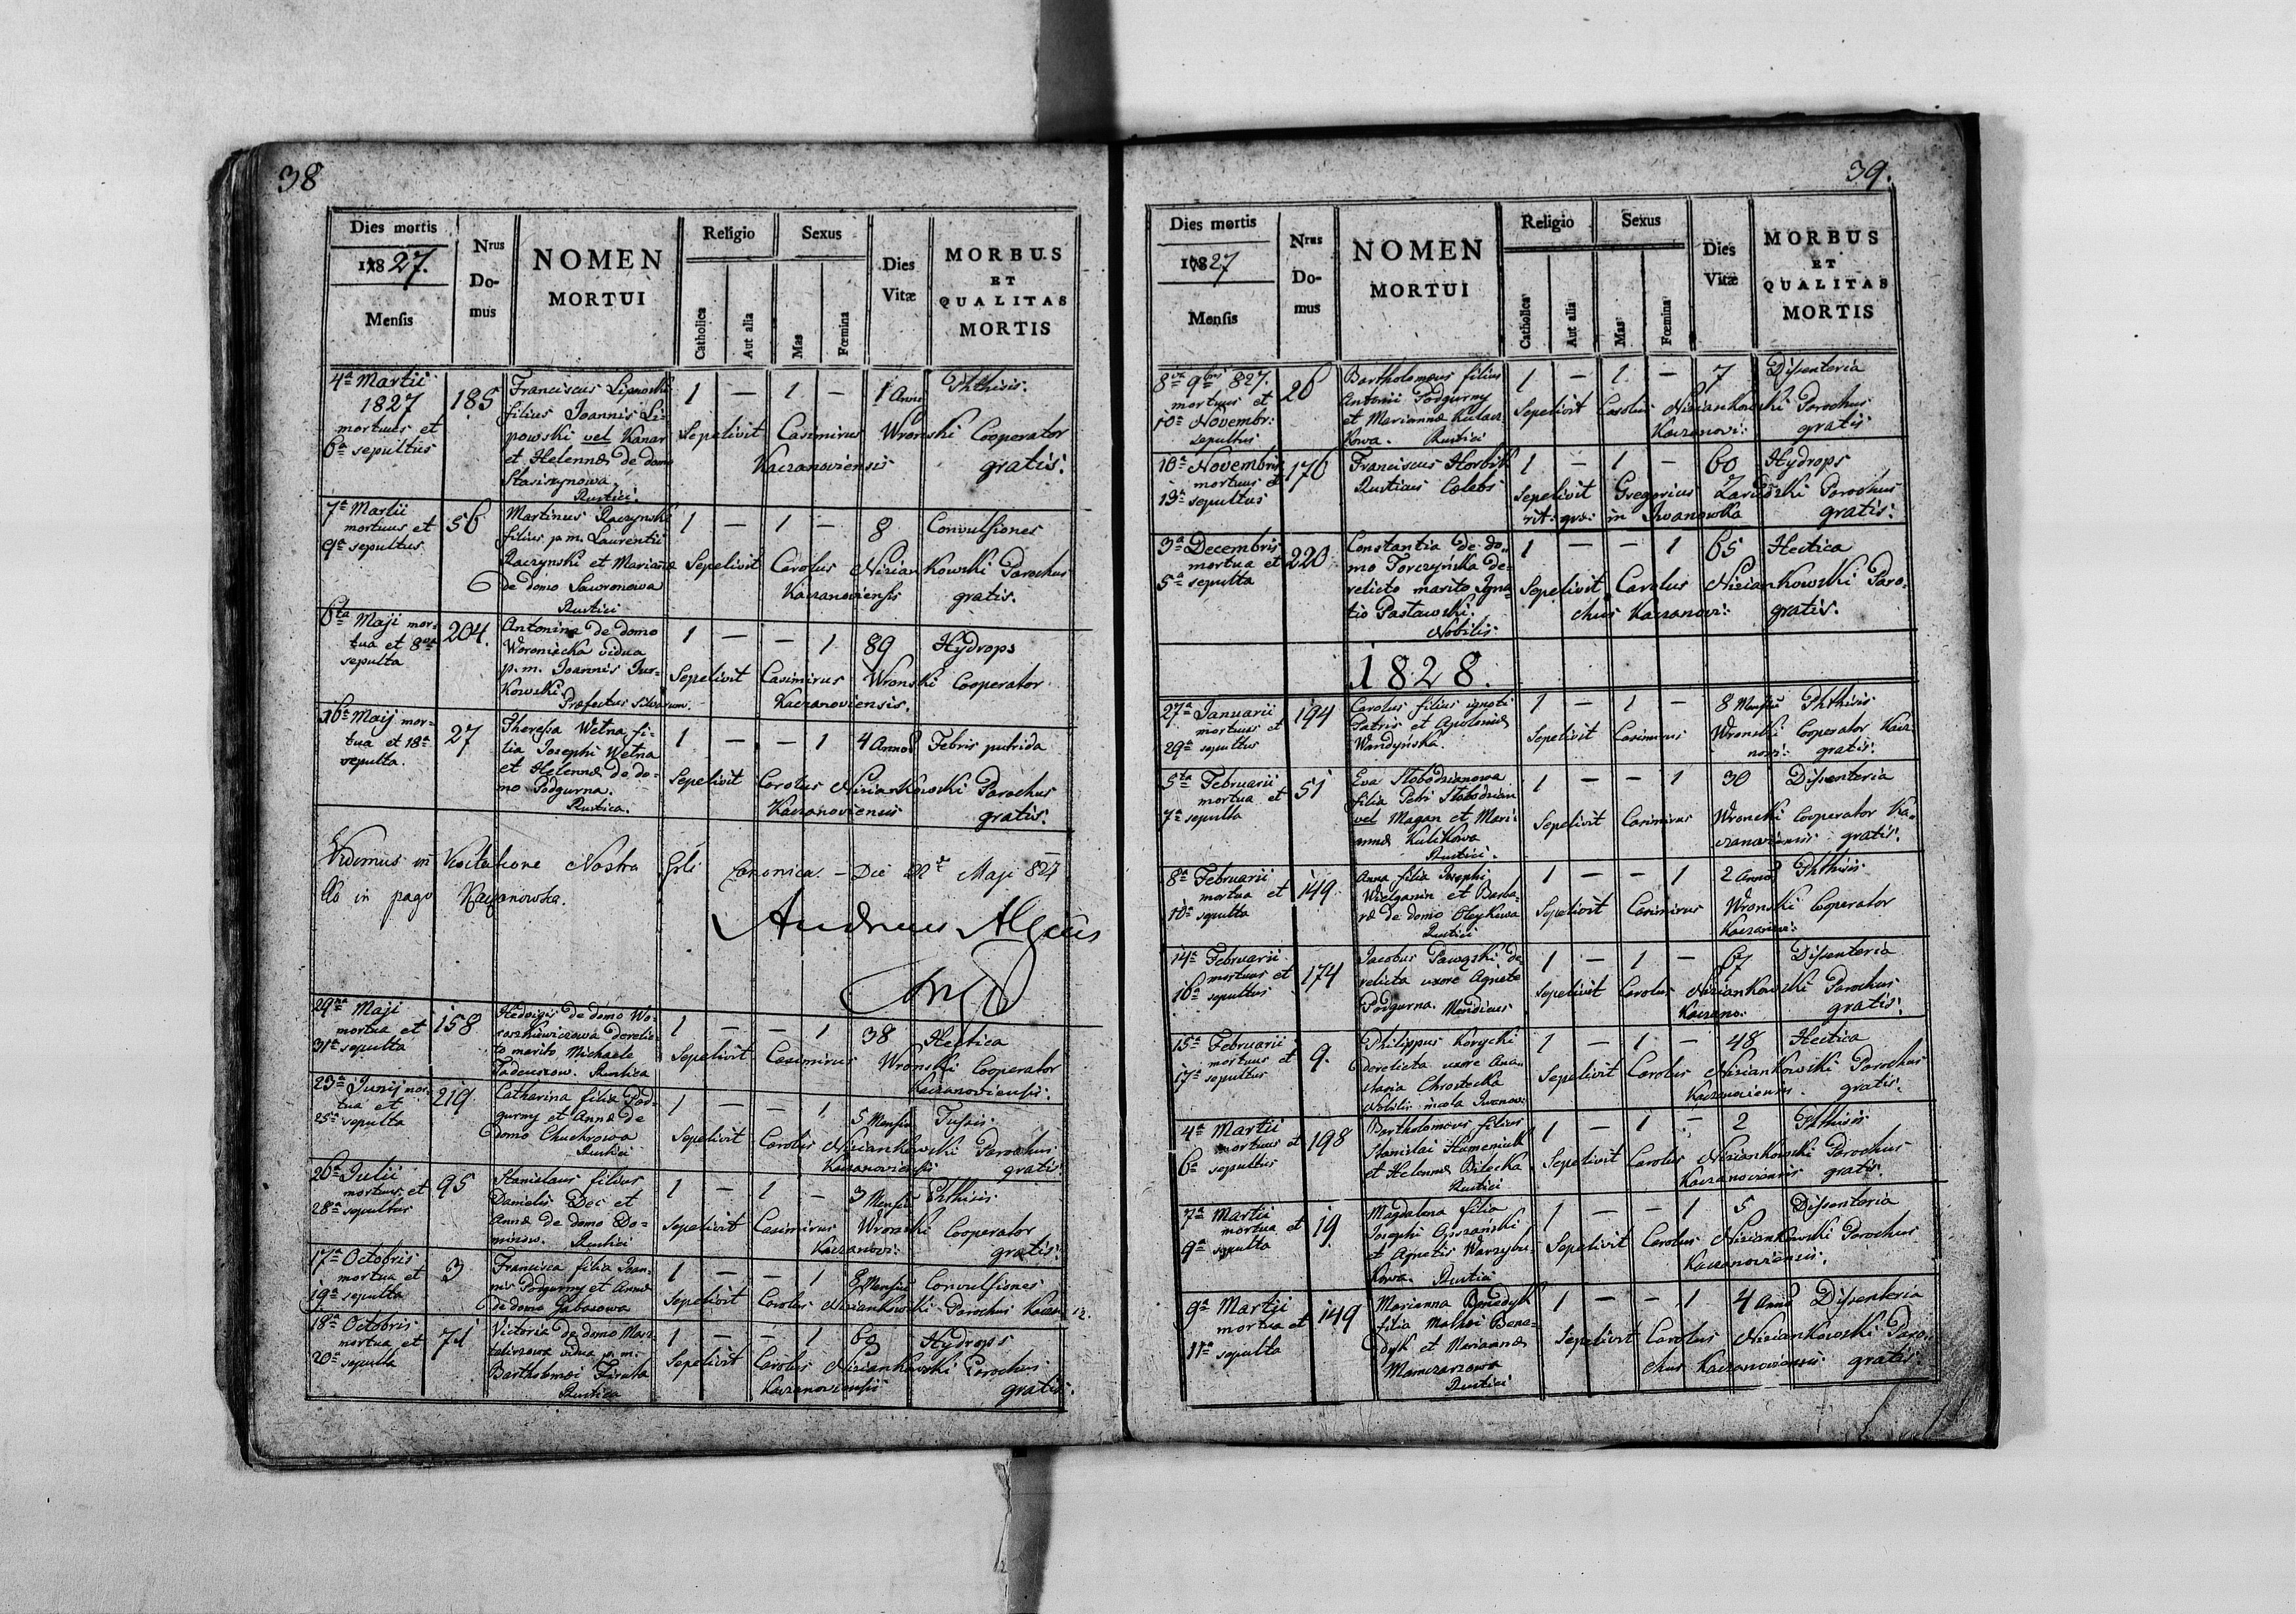 38
Dies mortis
1827.
Mensis
Nrus
Do-
mus
NOMEN
MORTUI
Religio
Catholica
Aut alia
Sexus
Mas
Fœmina
Dies
Vitæ
MORBUS
ET
QUALITAS
MORTIS
4ta Martii
1827
mortuus et
6ta sepultus
185
Franciscus Lipowski
filius Joannis Li-
powski vel Kanar
et Helennæ de domo
Stasiszynowa.
Rustici.
1 — 1 — 1 Anni Phthisis.
Sepelivit Casimirus Wronski Cooperator
Kaczanoviensis gratis.
7a Martii
mortuus et
9a sepultus
56
Martinus Raczynski
filius p. m. Laurentii
Raczynski et Mariannæ
de domo Sawronowa
Rustici
1 — 1 — 8 Convulsiones
Sepelivit Carolus Niziankowski Parochus
Kaczanoviensis gratis.
6ta Maji mor-
tua et 8va
sepulta
204.
Antonina de domo
Woroniecka vidua
p. m. Joannis Jur-
kowski.
Præfectus silvarum.
1 — — 1 89 Hydrops
Sepelivit Casimirus Wronski Cooperator
Kaczanoviensis.
16a Maij mor-
tua et 18a
sepulta.
27
Theresa Wetna fi-
lia Josephi Wetna
et Helennæ de do-
mo Podgurna.
Rustica.
1 — — 1 4 Annos Febris putrida
Sepelivit Carolus Niziankowski Parochus
Kaczanoviensis gratis.
Vidimus in Visitatione Nostra Grli Canonica. — Die 20a Maji 827
in pago Kaczanowka.
29na Maji
mortua et
31a sepulta
158
Hedvigis de domo Wo-
derelic-
to marito Michaele
Tadeuszow. Rustica
1 — — 1 38 Hectica
Sepelivit Casimirus Wronski Cooperator
Kaczanoviensis.
23a Junij mor-
tua et
25a sepulta
219.
Catharina filia Pod-
gurny et Annæ de
domo Chuchrowa
Rustici
1 — — 1 5 Mensiu Tussis
Sepelivit Carolus Niziankowski Parochus
Kaczanoviensis gratis.
26a Julii
mortuus et
28a sepultus
95
Stanislaus filius
Danielis Doc et
Annæ de domo Do-
minow. Rustici
1 — 1 — 3 Mensiu Phthisis
Sepelivit Casimirus Wronski Cooperator
Kaczanovi: gratis.
17a Octobris
mortua et
19a sepulta
3
Francisca filia Joan-
nis Podgurny et Annæ
de domo Gaborowa
1 — — 1 8 Mensiu Convulsiones
Sepelivit Carolus Niziankowski Parochus Kaczan
18a Octobris
mortua et
20a sepulta
74
Victoria de domo
vidua p. m.
Bartholomæi
Rustica
1 — — 1 60 Hydrops
Sepelivit Carolus Niziankowski Parochus
Kaczanoviensis gratis.
39.
Dies mortis
1827
Mensis
Nrus
Do-
mus
NOMEN
MORTUI
Religio
Catholica
Aut alia
Sexus
Mas
Fœmina
Dies
Vitæ
MORBUS
ET
QUALITAS
MORTIS
8va 9bris 827.
mortuus et
10a Novembr:
sepultus
26
Bartholomæus filius
Antonii Podgurny
et Mariannæ Kulacz-
kowa. Rustici
1 — 1 — 7 Dissenteria
Sepelivit Carolus Niziankowski Parochus
Kaczanovi: gratis
10a Novembris
mortuus et
13a sepultus
176
Franciscus Horbik
Rusticus Celebs
1 — 1 — 60 Hydrops
Sepelivit Gregorius Zarudzki Parochus
rit: græ: in Iwanowka gratis.
3a Decembris
mortua et
5a sepulta
220.
Constantia de do-
mo Torczyńska de-
relicto marito Igna-
tio Pastawski.
Nobilis.
1 — — 1 65 Hectica
Sepelivit Carolus Niziankowski Paro-
chus Kaczanovi: gratis.
1828.
27a Januarii
mortuus et
29a sepultus
194
Carolus filius ignoti
Patris et Apoloniæ
Wandyńska.
1 — 1 — 8 Mensiu Phthisis
Sepelivit Casimirus Wronski Cooperator Kacz
novi: gratis.
5ta Februarii
mortua et
7a sepulta
51
Eva Slobodzianowa
filia Petri Slobodzian
vel Magan et Mari-
annæ Kulikowa
Rustici.
1 — — 1 30 Dissenteria
Sepelivit Casimirus Wronski Cooperator Ka-
czanoviensis gratis.
8a Februarii
mortua et
10a sepulta
149.
Anna filia Josephi
Wielganin et Barba-
ræ de domo Oleykowa
Rustici
1 — — 1 2 Annos Phthisis
Sepelivit Casimirus Wronski Cooperator
Kaczanovi:
14a Februarii
mortuus et
16a sepultus
174
Jacobus Pawązki de-
relicta uxore Agnete
Podgurna. Mendicus
1 — 1 — 67 Dissenteria
Sepelivit Carolus Niziankowski Parochus
Kaczano: gratis.
15a Februarii
mortuus et
17a sepultus
9.
Philippus Korycki
derelicta uxore Ana-
stasia Chrostecka
Nobilis incola Iwanow:
1 — 1 — 48 Hectica
Sepelivit Carolus Niziankowski Parochus
Kaczanoviensis. gratis.
4a Martii
mortuus et
6a sepultus
198
Bartholomæus filius
Stanislai Humeniuk
et Helennæ Bilecka
Rustici
1 — 1 — 2 Phthisis
Sepelivit Carolus Niziankowski Parochus
Kaczanoviensis gratis.
7a Martii
mortua et
9a sepulta
19.
Magdalena filia
Josephi
et Agnetis Warzybu-
kowa. Rustici
1 — — 1 5 Dissenteria
Sepelivit Carolus Niziankowski Parochus
Kaczanoviensis.
9a Martji
mortua et
11a sepulta
149
Marianna Benedyk
filia Mathæi Bene-
dyk et Mariannæ
Mamczarzowa
Rustici
1 — — 1 4 Anno Dissenteria
Sepelivit Carolus Niziankowski Paro-
chus Kaczanoviensis gratis.